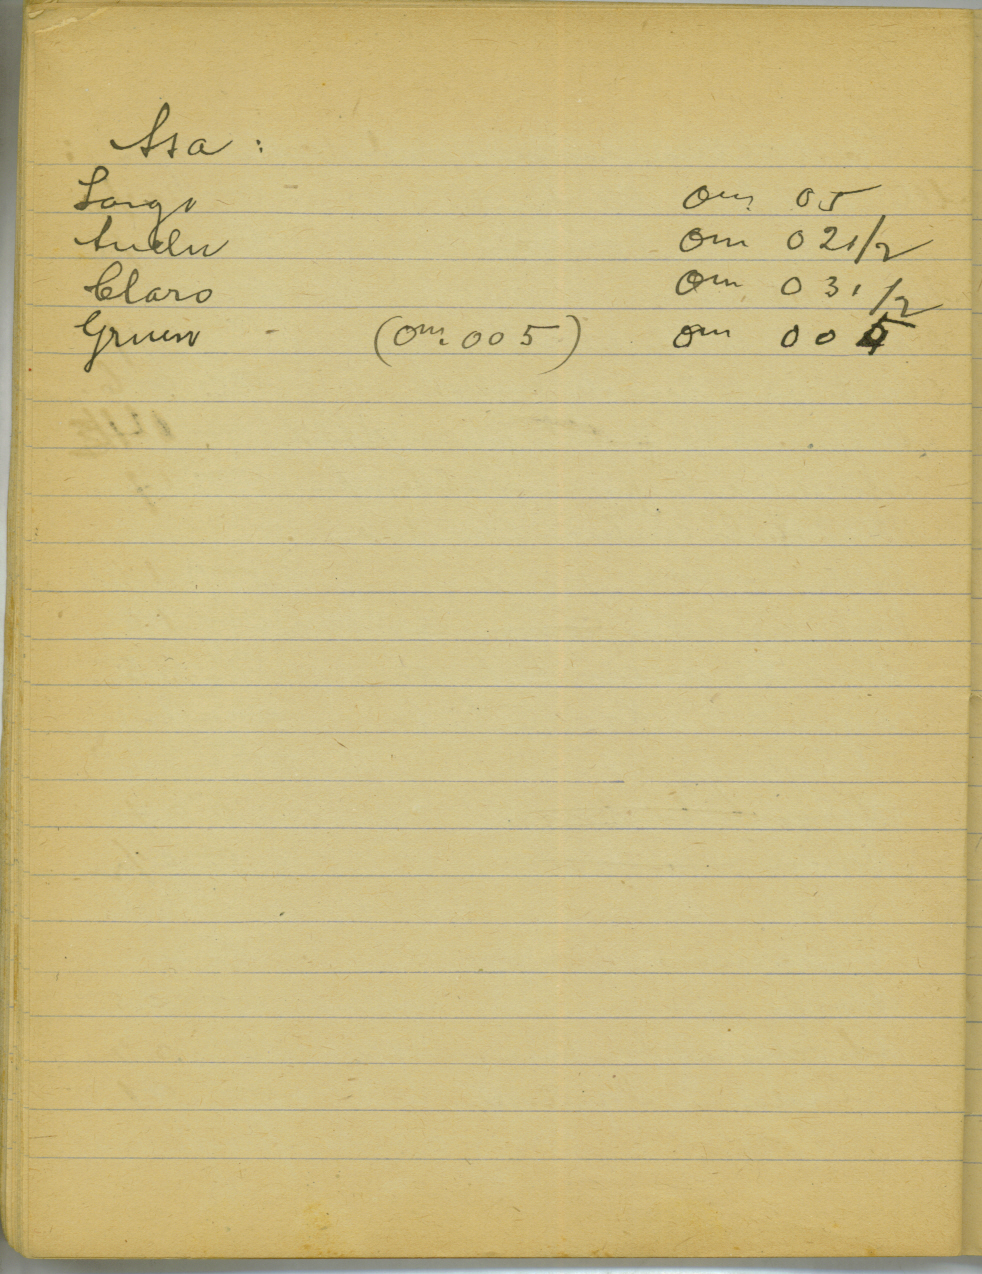 Asa :
Largo 0m. 05
Ancho 0m 021/2
Claro 0m 031/2
Grueso - (0m. 005) 0m 005